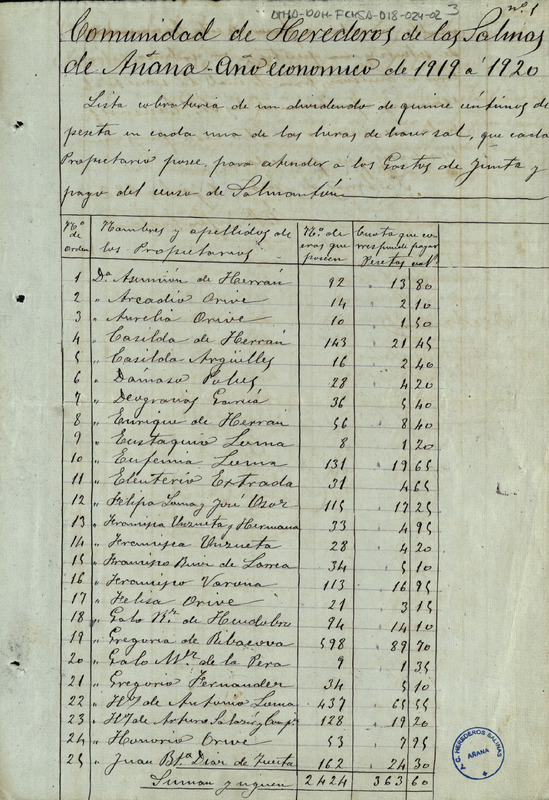 OMHD-DOH-FCHSA-018-024-02
3
nº 1
Comunidad de Herederos de las Salinas
de Añana - Año economico de 1919 á 1920
Lista cobratoria de un dividendo de quince céntimos de
peseta en cada una de las heras de hacer sal, que cada
Propietario posee, para atender á los Gastos de Junta y
pago del censo de Salmantón
Nº de Orden | Nombres y apellidos de los Propietarios | Nº de eras que poseen | Cuota que corresponde pagar Pesetas
1 Dª Asunción de Herrán 92 13 80
2 " Arcadio Orive 14 2 10
3 " Aurelia Orive 10 1 50
4 " Casilda de Herrán 143 21 45
5 " Casilda Argüelles 16 2 40
6 " Dámaso 28 4 20
7 " Deogracias García 36 5 40
8 " Enrique de Herrán 56 8 40
9 " Eustaquio Loma 8 1 20
10 " Eufemia Loma 131 19 65
11 " Eleuterio Estrada 31 4 65
12 " Felipa Loma y José 115 17 25
13 " Francisca Unzueta y Hermana 33 4 95
14 " Francisca Unzueta 28 4 20
15 " Francisco de Larrea 34 5 10
16 " Francisco Varona 113 16 95
17 " Felisa Orive 21 3 15
18 " Galo Rz. de Huidobro 94 14 10
19 " Gregoria de Ribacova 598 89 70
20 " Galo Mz. de la Pera 9 1 35
21 " Gregorio Fernandez 34 5 10
22 " Hs de Antonio Loma 437 65 55
23 " Hs de Arturo Salazar y Compª 128 19 20
24 " Honorio Orive 53 7 95
25 " Juan Btª Diaz de Tuesta 162 24 30
Suman y siguen 2424 363 60
C. HEREDEROS SALINAS
AÑANA